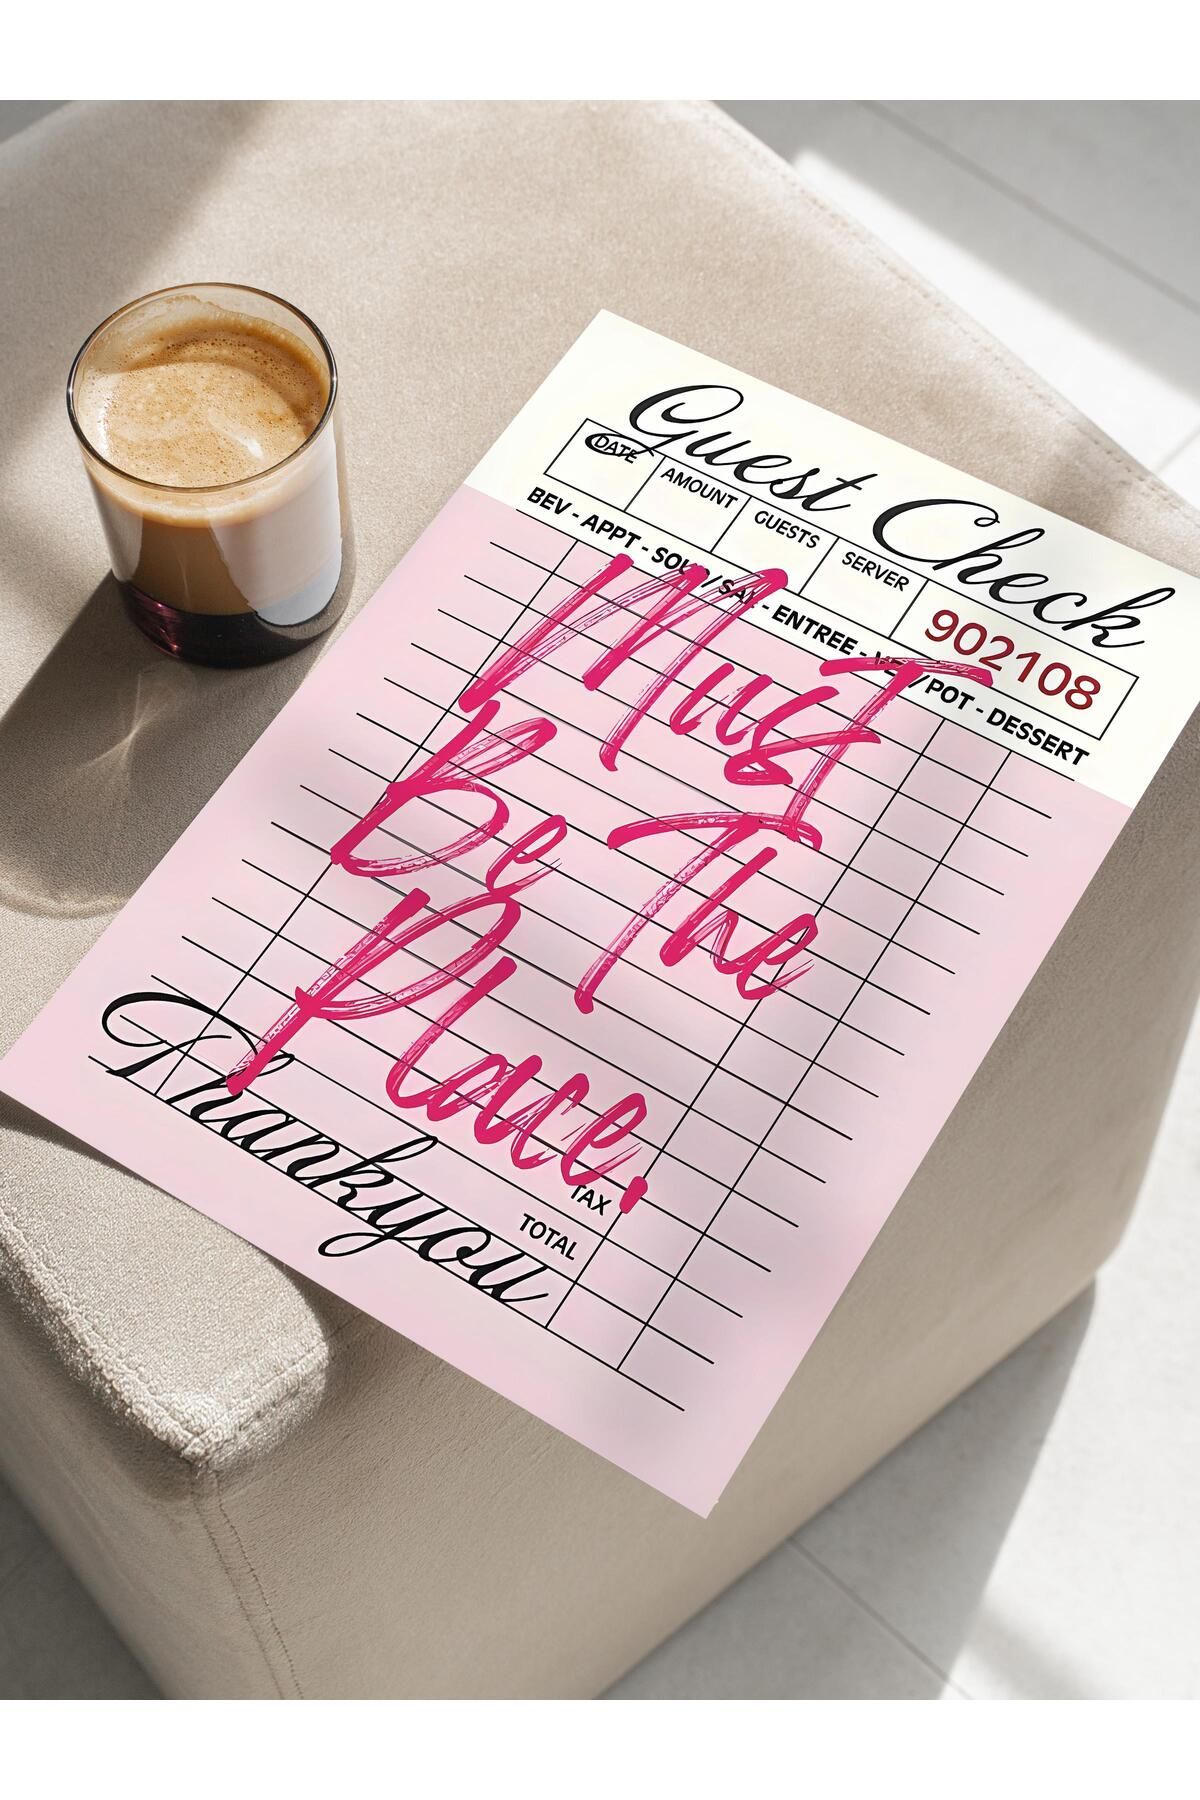 Guest Check
DATE AMOUNT GUESTS SERVER 902108
BEV - APPT - SOUP / SAL - ENTREE - VEG / POT - DESSERT
Must
Be The
Place.
TAX
TOTAL
Thankyou